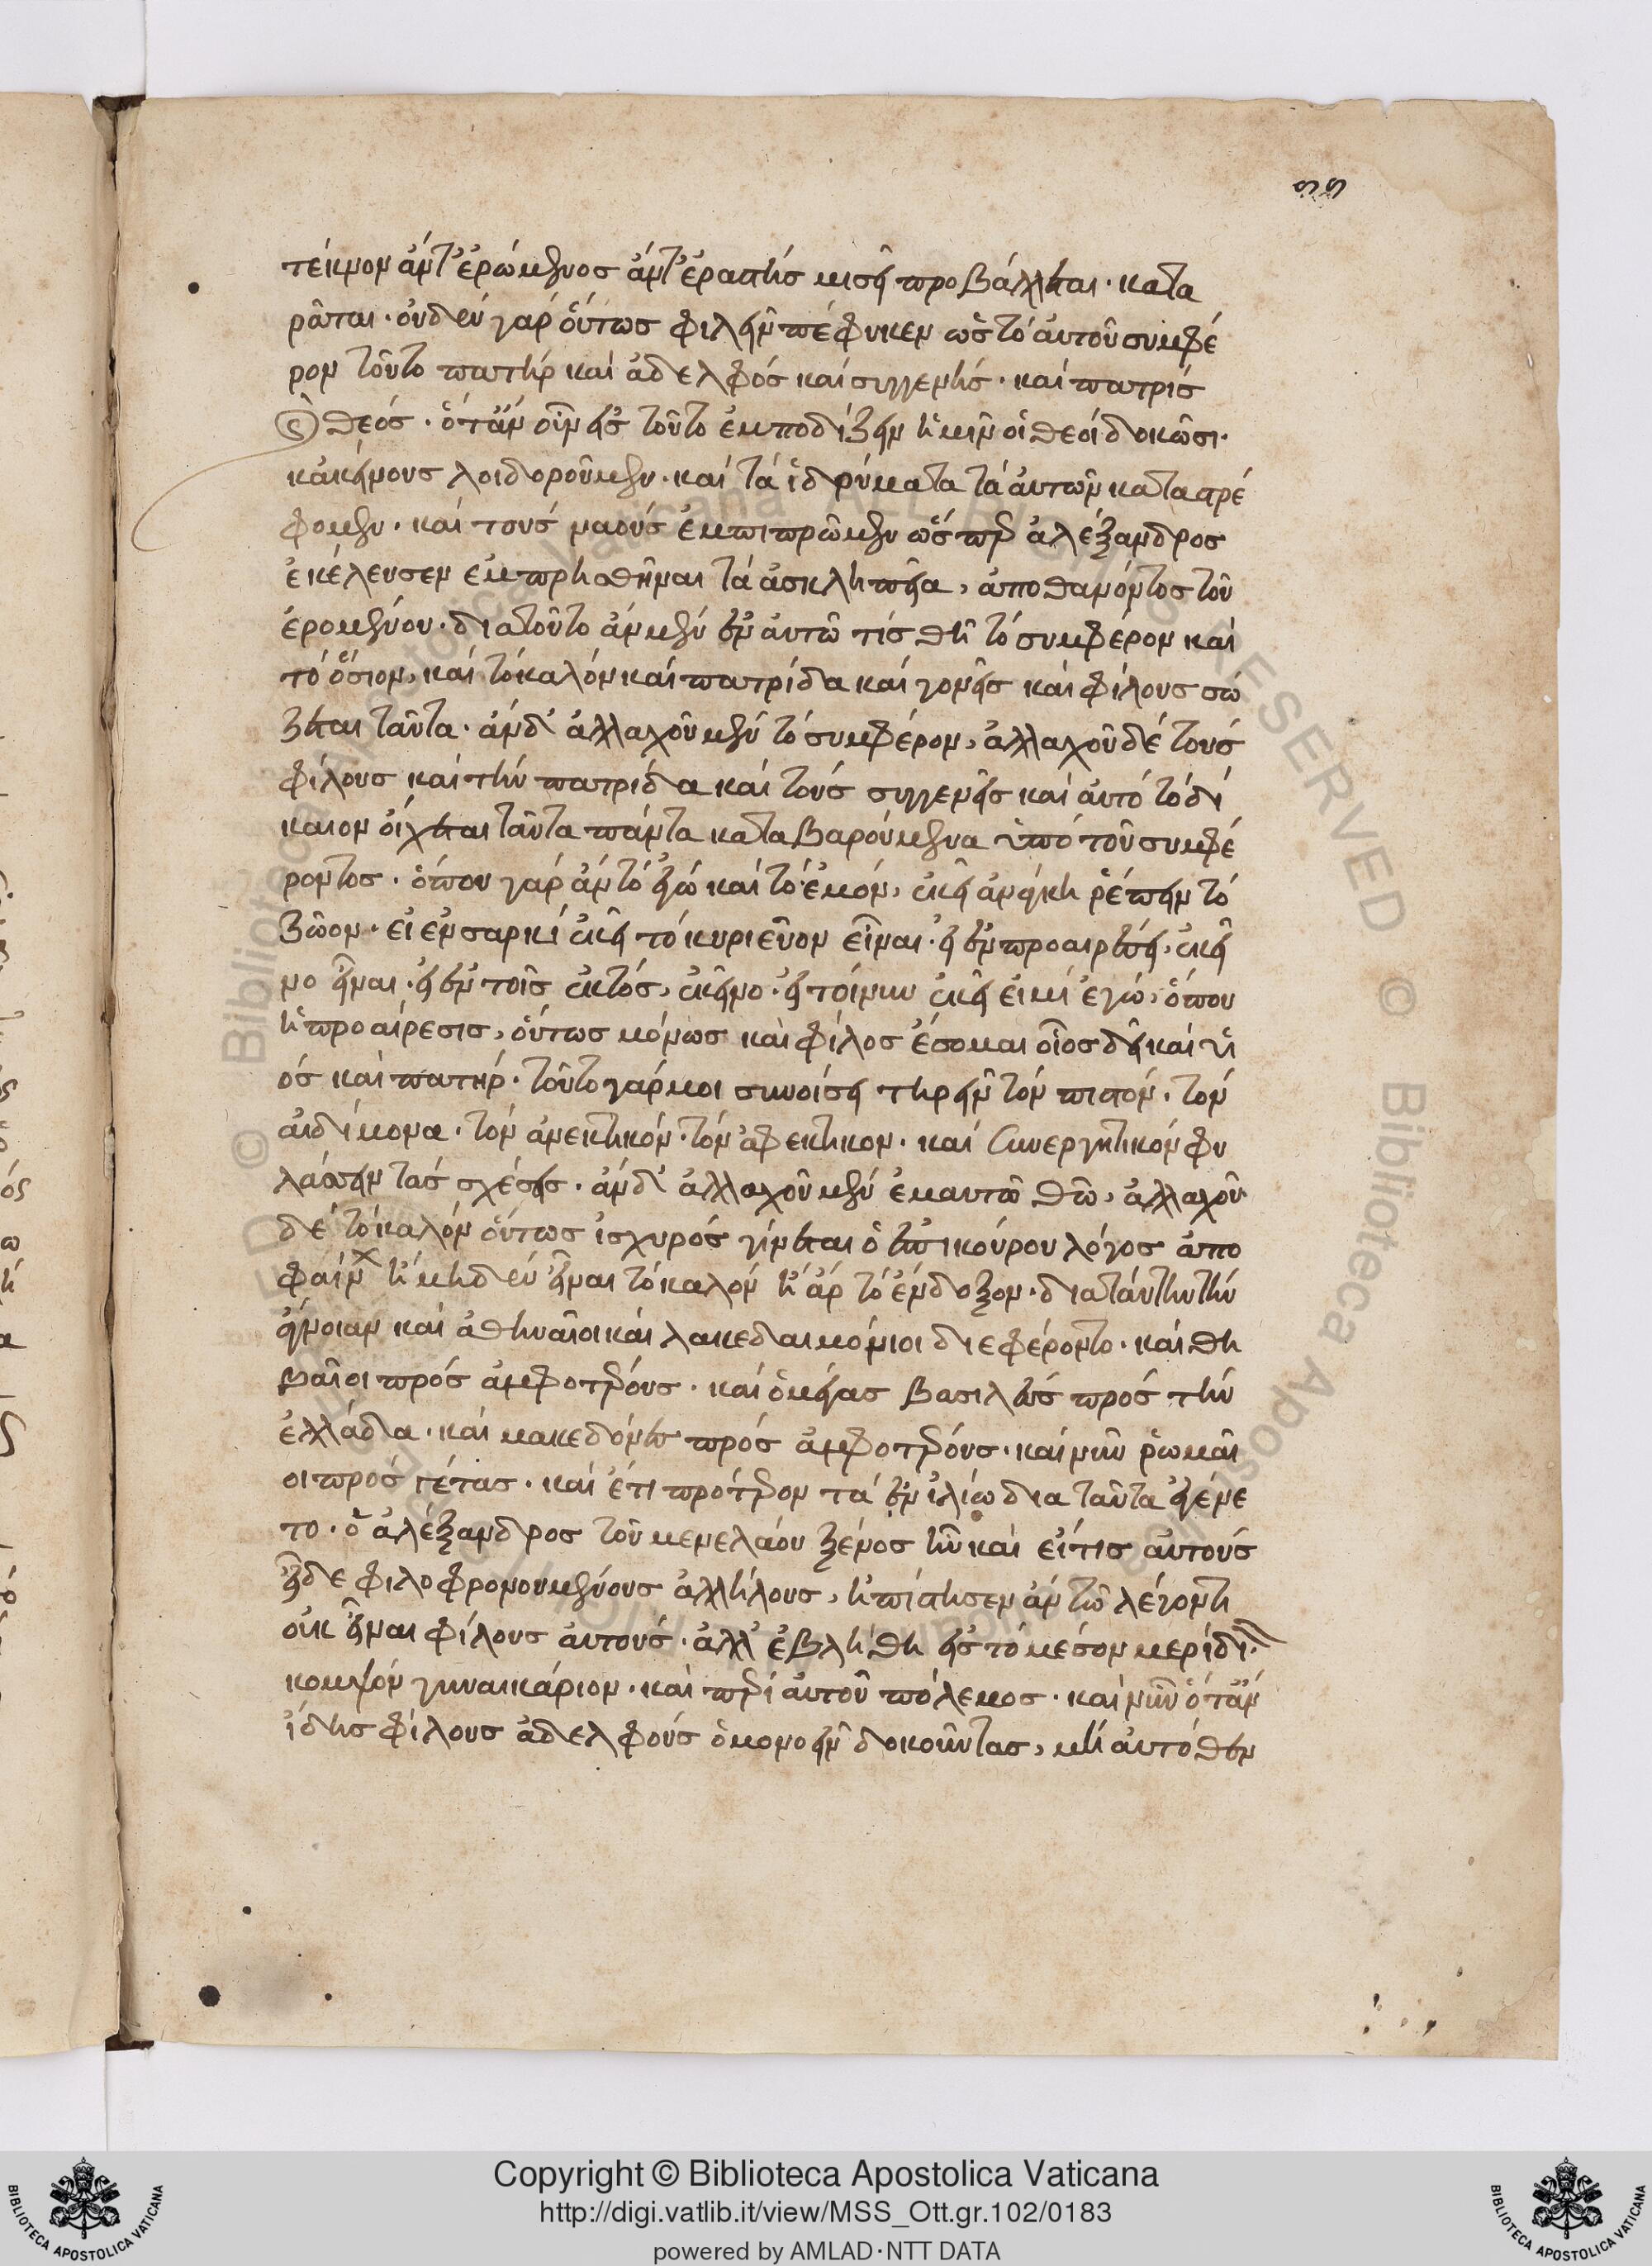 ςς
τέκνον ἄντ' ἐρώμενος ἄντ' ἐραστὴς μισεῖ προβάλλεται · κατα
ρᾶται · οὐδὲν γὰρ οὕτως φιλεῖν πέφυκεν ὡς τὸ αὐτοῦ συμφέ
ρον τοῦτο πατὴρ καὶ ἀδελφὸς καὶ συγγενὴς · καὶ πατρὶς
θεός · ὅτἂν οὖν εἰς τοῦτο ἐμποδίζειν ἡμῖν οἱ θεοὶ δοκῶσι ·
κἀκείνους λοιδοροῦμεν · καὶ τὰ ἱδρύματα τὰ αὐτῶν καταστρέ
φομεν · καὶ τοὺς ναοὺς ἐμπιπρῶμεν ὥσπερ ἀλέξανδρος
ἐκέλευσεν ἐμπρησθῆναι τὰ ἀσκληπεῖα, ἀποθανόντος τοῦ
ἐρομένου · διατοῦτο ἂν μὲν ἐν αὐτῶ τίς θῆ τὸ συμφέρον καὶ
τὸ ὅσιον, καὶ τὸ καλὸν καὶ πατρίδα καὶ γονεῖς καὶ φίλους σώ
ζεται ταῦτα · ἂν δ' ἀλλαχοῦ μὲν τὸ συμφέρον, ἀλλαχοῦ δὲ τοὺς
φίλους καὶ τὴν πατρίδα καὶ τοὺς συγγενεῖς καὶ αὐτὸ τὸ δί
καιον οἴχεται ταῦτα πάντα καταβαρούμενα ὑπὸ τοῦ συμφέ
ροντος · ὅπου γὰρ ἂν τὸ ἐγὼ καὶ τὸ ἐμὸν, ἐκεῖ ἀνάγκη ῥέπειν τὸ
ζῶον · εἰ ἐν σαρκὶ ἐκεῖ τὸ κυριεῦον εἶναι · εἰ ἐν προαιρέσει, ἐκεῖ
νο εἶναι · εἰ ἐν τοῖς ἐκτὸς, ἐκεῖνο · εἰ τοίνυν ἐκεῖ εἰμὶ ἐγὼ, ὅπου
ἡ προαίρεσις, οὕτως μόνως καὶ φίλος ἔσομαι οἷος δεῖ καὶ υἱ
ὸς καὶ πατήρ · τοῦτο γάρ μοι συνοίσει τηρεῖν τὸν πιστὸν · τὸν
αἰδήμονα · τὸν ἀνεκτικόν · τὸν ἀφεκτικον · καὶ συνεργητικὸν φυ
λάσσειν τὰς σχέσεις · ἂν δ' ἀλλαχοῦ μὲν ἐμαυτῶ θῶ, ἀλλαχοῦ
δὲ τὸ καλὸν οὕτως ἰσχυρὸς γίνεται ὁ ἐπικούρου λόγος ἀπο
φαίν ἢ μηδὲν εἶναι τὸ καλὸν ἢ ἄρ τὸ ἔνδοξον · διαταύτην τὴν
ἄγνοιαν καὶ ἀθηναῖοι καὶ λακεδαιμόνιοι διεφέροντο · καὶ θη
βαῖοι πρὸς ἀμφοτέρους · καὶ ὁ μέγας βασιλεὺς πρὸς τὴν
ἑλλάδα · καὶ μακεδόνες πρὸς ἀμφοτέρους · καὶ νῦν ῥωμαῖ
οι πρὸς γέτας · καὶ ἔτι πρότερον τὰ ἐν ἰλίω δια ταῦτα ἐγένε
το · ὁ ἀλέξανδρος τοῦ μενελάου ξένος ἦν καὶ εἴ τις αὐτοὺς
εἶδε φιλοφρονουμένους ἀλλήλους, ἠπίστησεν ἂν τῶ λέγοντι
οὐκ εἶναι φίλους αὐτούς · ἀλλ' ἐβλήθη εἰς τὸ μέσον μερίδι ·
κομψὸν γυναικάριον · καὶ περὶ αὐτοῦ πόλεμος · καὶ νῦν ὅτἂν
ἴδης φίλους ἀδελφοὺς ὁμονοεῖν δοκοῦντας, μὴ αὐτόθεν
Copyright © Biblioteca Apostolica Vaticana
http://digi.vatlib.it/view/MSS_Ott.gr.102/0183
powered by AMLAD·NTT DATA